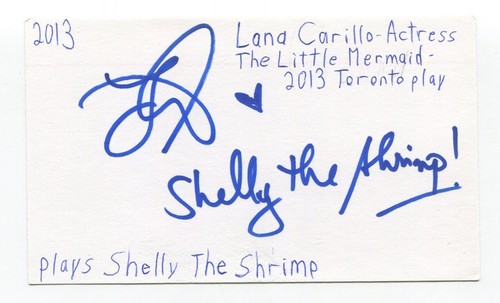 2013
Lana Carillo-Actress
The Little Mermaid-
2013 Toronto play
Shelly the Shrimp!
plays Shelly The Shrimp